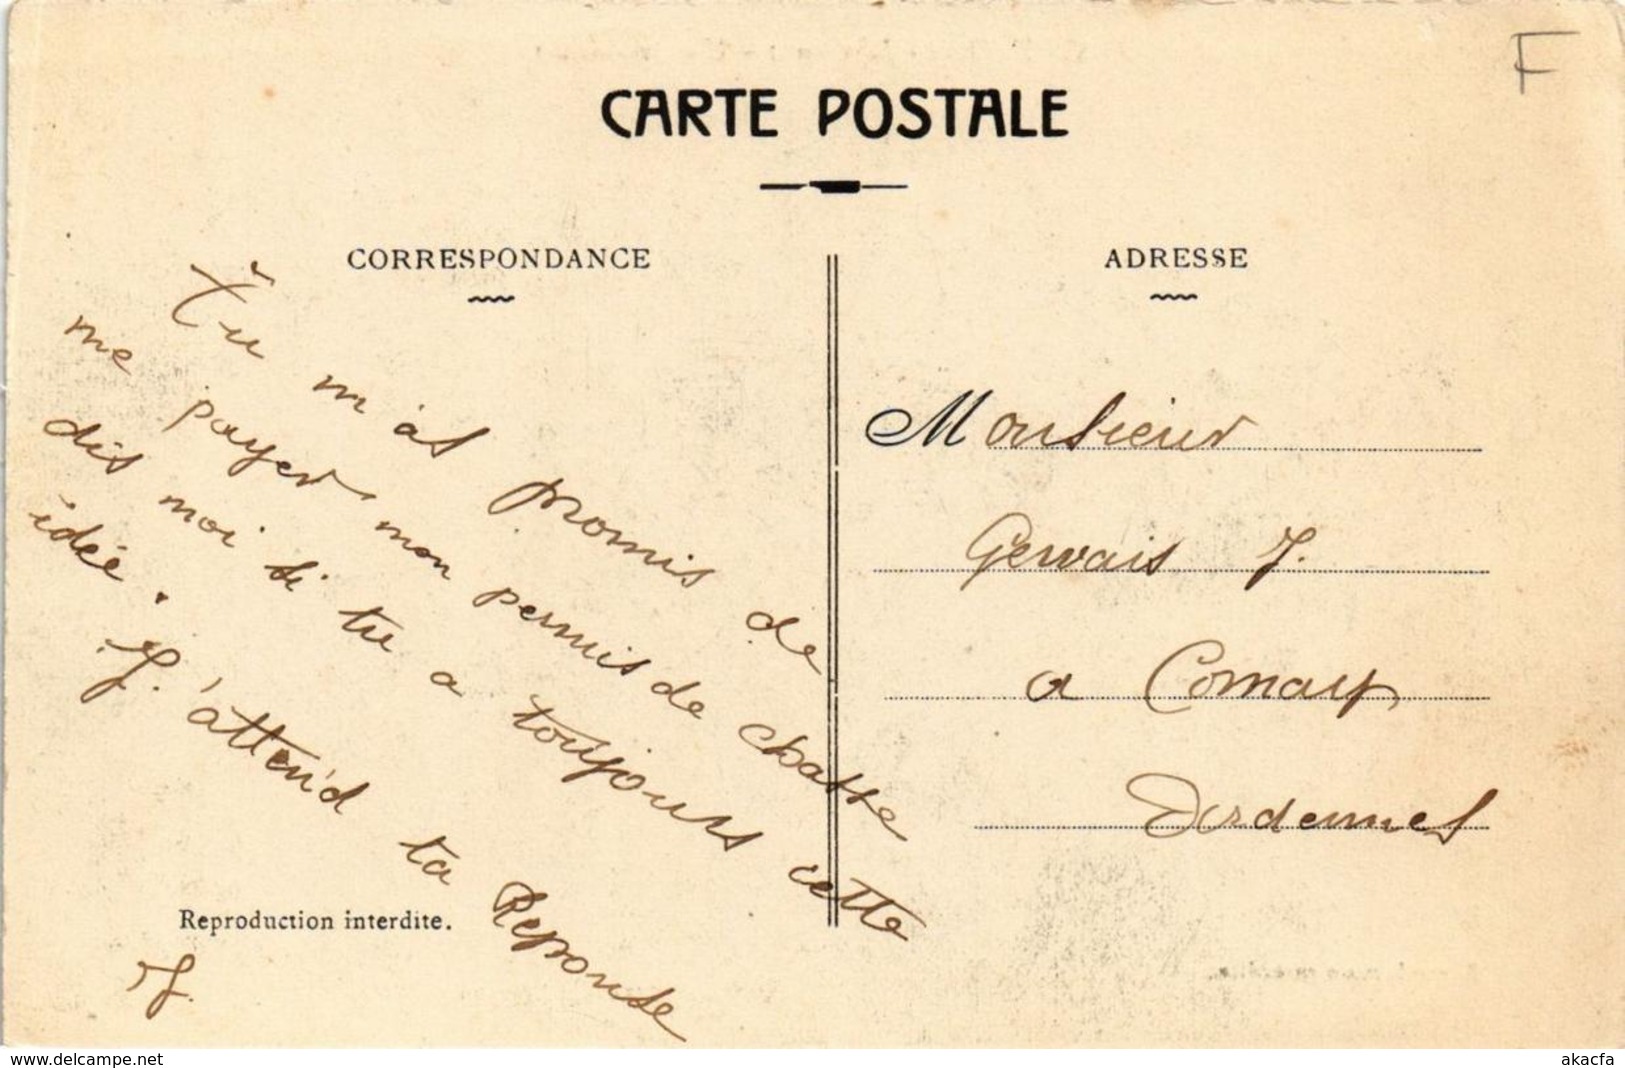 F
CARTE POSTALE
CORRESPONDANCE
Tu m'as promis de
me payer mon permis de chasse
dis moi si tu a toujours cette
idée.
J'attend ta Reponse
J.
Reproduction interdite.
ADRESSE
Monsieur
Gervais J.
a Cornay
Ardennes
www.delcampe.net
akacfa